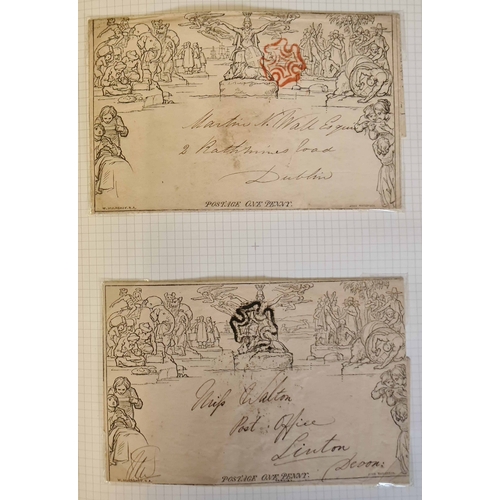 Martin N. Wall Esqre
2 Rathmines Road
Dublin
POSTAGE ONE PENNY.
W. MULREADY. R.A.
Miss Walton
Post Office
Linton
Devon
POSTAGE ONE PENNY.